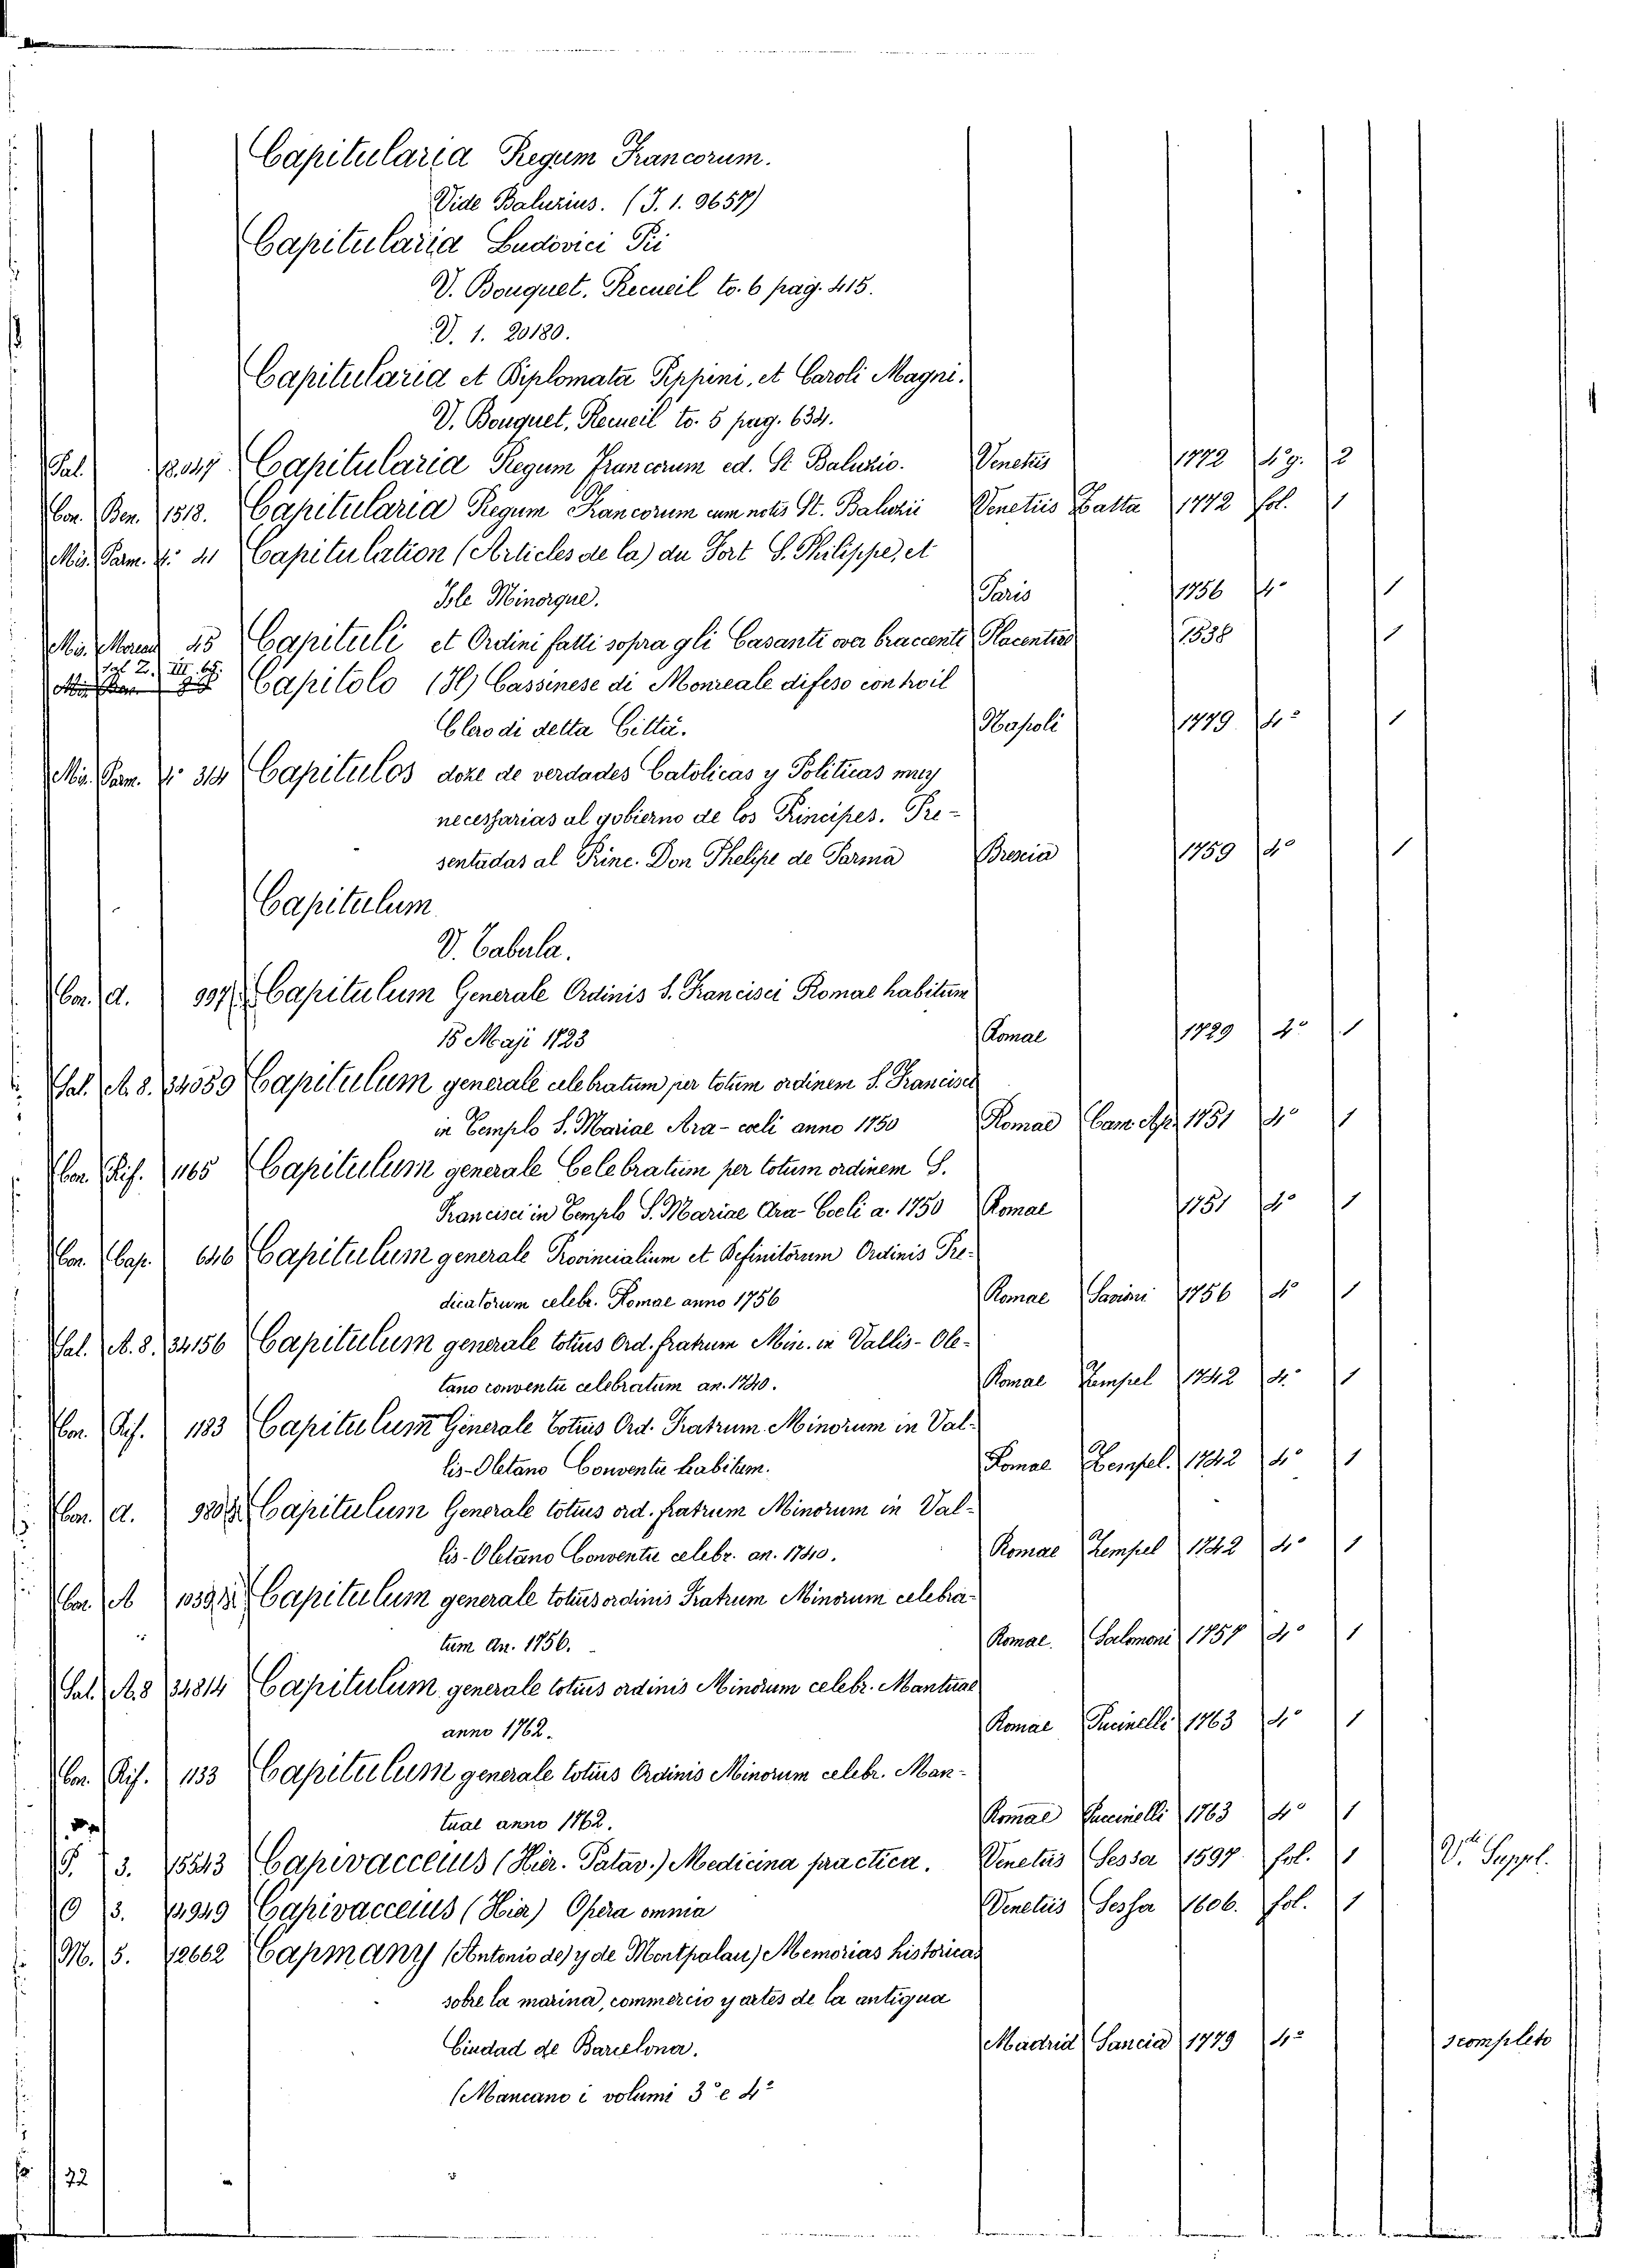 Capitularia Regum Francorum.
Vide Baluzius. (J. 1. 9657)
Capitularia Ludovici Pii
V. Bouquet. Recueil to. 6 pag. 415.
V. 1. 20180.
Capitularia et Diplomata Pippini, et Caroli Magni.
V. Bouquet, Recueil to. 5 pag. 634.
Pal. 18.047 Capitularia Regum Francorum ed. St Baluzio. Venetiis 1772 2
Con. Ben. 1518. Capitularia Regum Francorum cum notis St. Baluzii Venetiis Zatta 1772 fol. 1
Mis. Parm. 4° 41 Capitulation (Articles de la) du Fort S. Philippe, et
Isle Minorque. Paris 1756 4° 1
Mis. 45 Capituli et Ordini fatti sopra gli Casanti over braccenti Placentiae 1538 1
Capitolo (Il) Cassinese di Monreale difeso contro il
Clero di detta Città. Napoli 1779 4° 1
Mis. Parm. 4° 314 Capitulos doze de verdades Catolicas y Politicas muy
necessarias al gobierno de los Principes. Pre-
sentadas al Princ. Don Phelipe de Parma Brescia 1759 4° 1
Capitulum
V. Tabula.
Con. d. 997 Capitulum Generale Ordinis S. Francisci Romae habitum
15 Maji 1723 Romae 1729 4° 1
Sal. A. 8. 34089 Capitulum generale celebratum per totum ordinem S. Francisci
in Templo S. Mariae Ara-coeli anno 1750 Romae Cam. Ap. 1751 4° 1
Con. Rif. 1165 Capitulum generale Celebratum per totum ordinem S.
Francisci in Templo S. Mariae Ara-Coeli a. 1750 Romae 1751 4° 1
Con. Cap. 646 Capitulum generale Provincialium et Definitorum Ordinis Pre-
dicatorum celebr. Romae anno 1756 Romae 1756 4° 1
Sal. A. 8. 34156 Capitulum generale totius Ord. fratrum Min. in Vallis-Ole-
tano conventu celebratum an. 1740. Romae Zempel 1742 4° 1
Con. Rif. 1183 Capitulum Generale Totius Ord. Fratrum Minorum in Val-
lis-Oletano Conventu habitum. Romae Zempel. 1742 4° 1
Con. d. 980 Capitulum Generale totius ord. fratrum Minorum in Val-
lis-Oletano Conventu celebr. an. 1740. Romae Zempel 1742 4° 1
Con. A 1039 Capitulum generale totius ordinis Fratrum Minorum celebra-
tum An. 1756. Romae. Salomoni 1757 4° 1
Sal. A. 8 34814 Capitulum generale totius ordinis Minorum celebr. Mantuae
anno 1762. Romae Puccinelli 1763 4° 1
Con. Rif. 1133 Capitulum generale totius Ordinis Minorum celebr. Man-
tuae anno 1762. Romae Puccinelli 1763 4° 1
3. 15543 Capivacceius (Hier. Patav.) Medicina practica. Venetiis Sessa 1597 fol. 1 V. Suppl.
O 3. 14949 Capivacceius (Hier) Opera omnia Venetiis Sessa 1606. fol. 1
M. 5. 12662 Capmany (Antonio de) y de Montpalau) Memorias historicas
sobre la marina, commercio y artes de la antigua
Ciudad de Barcelona. Madrid Sancia 1779 4° scompleto
(Mancano i volumi 3° e 4°
72